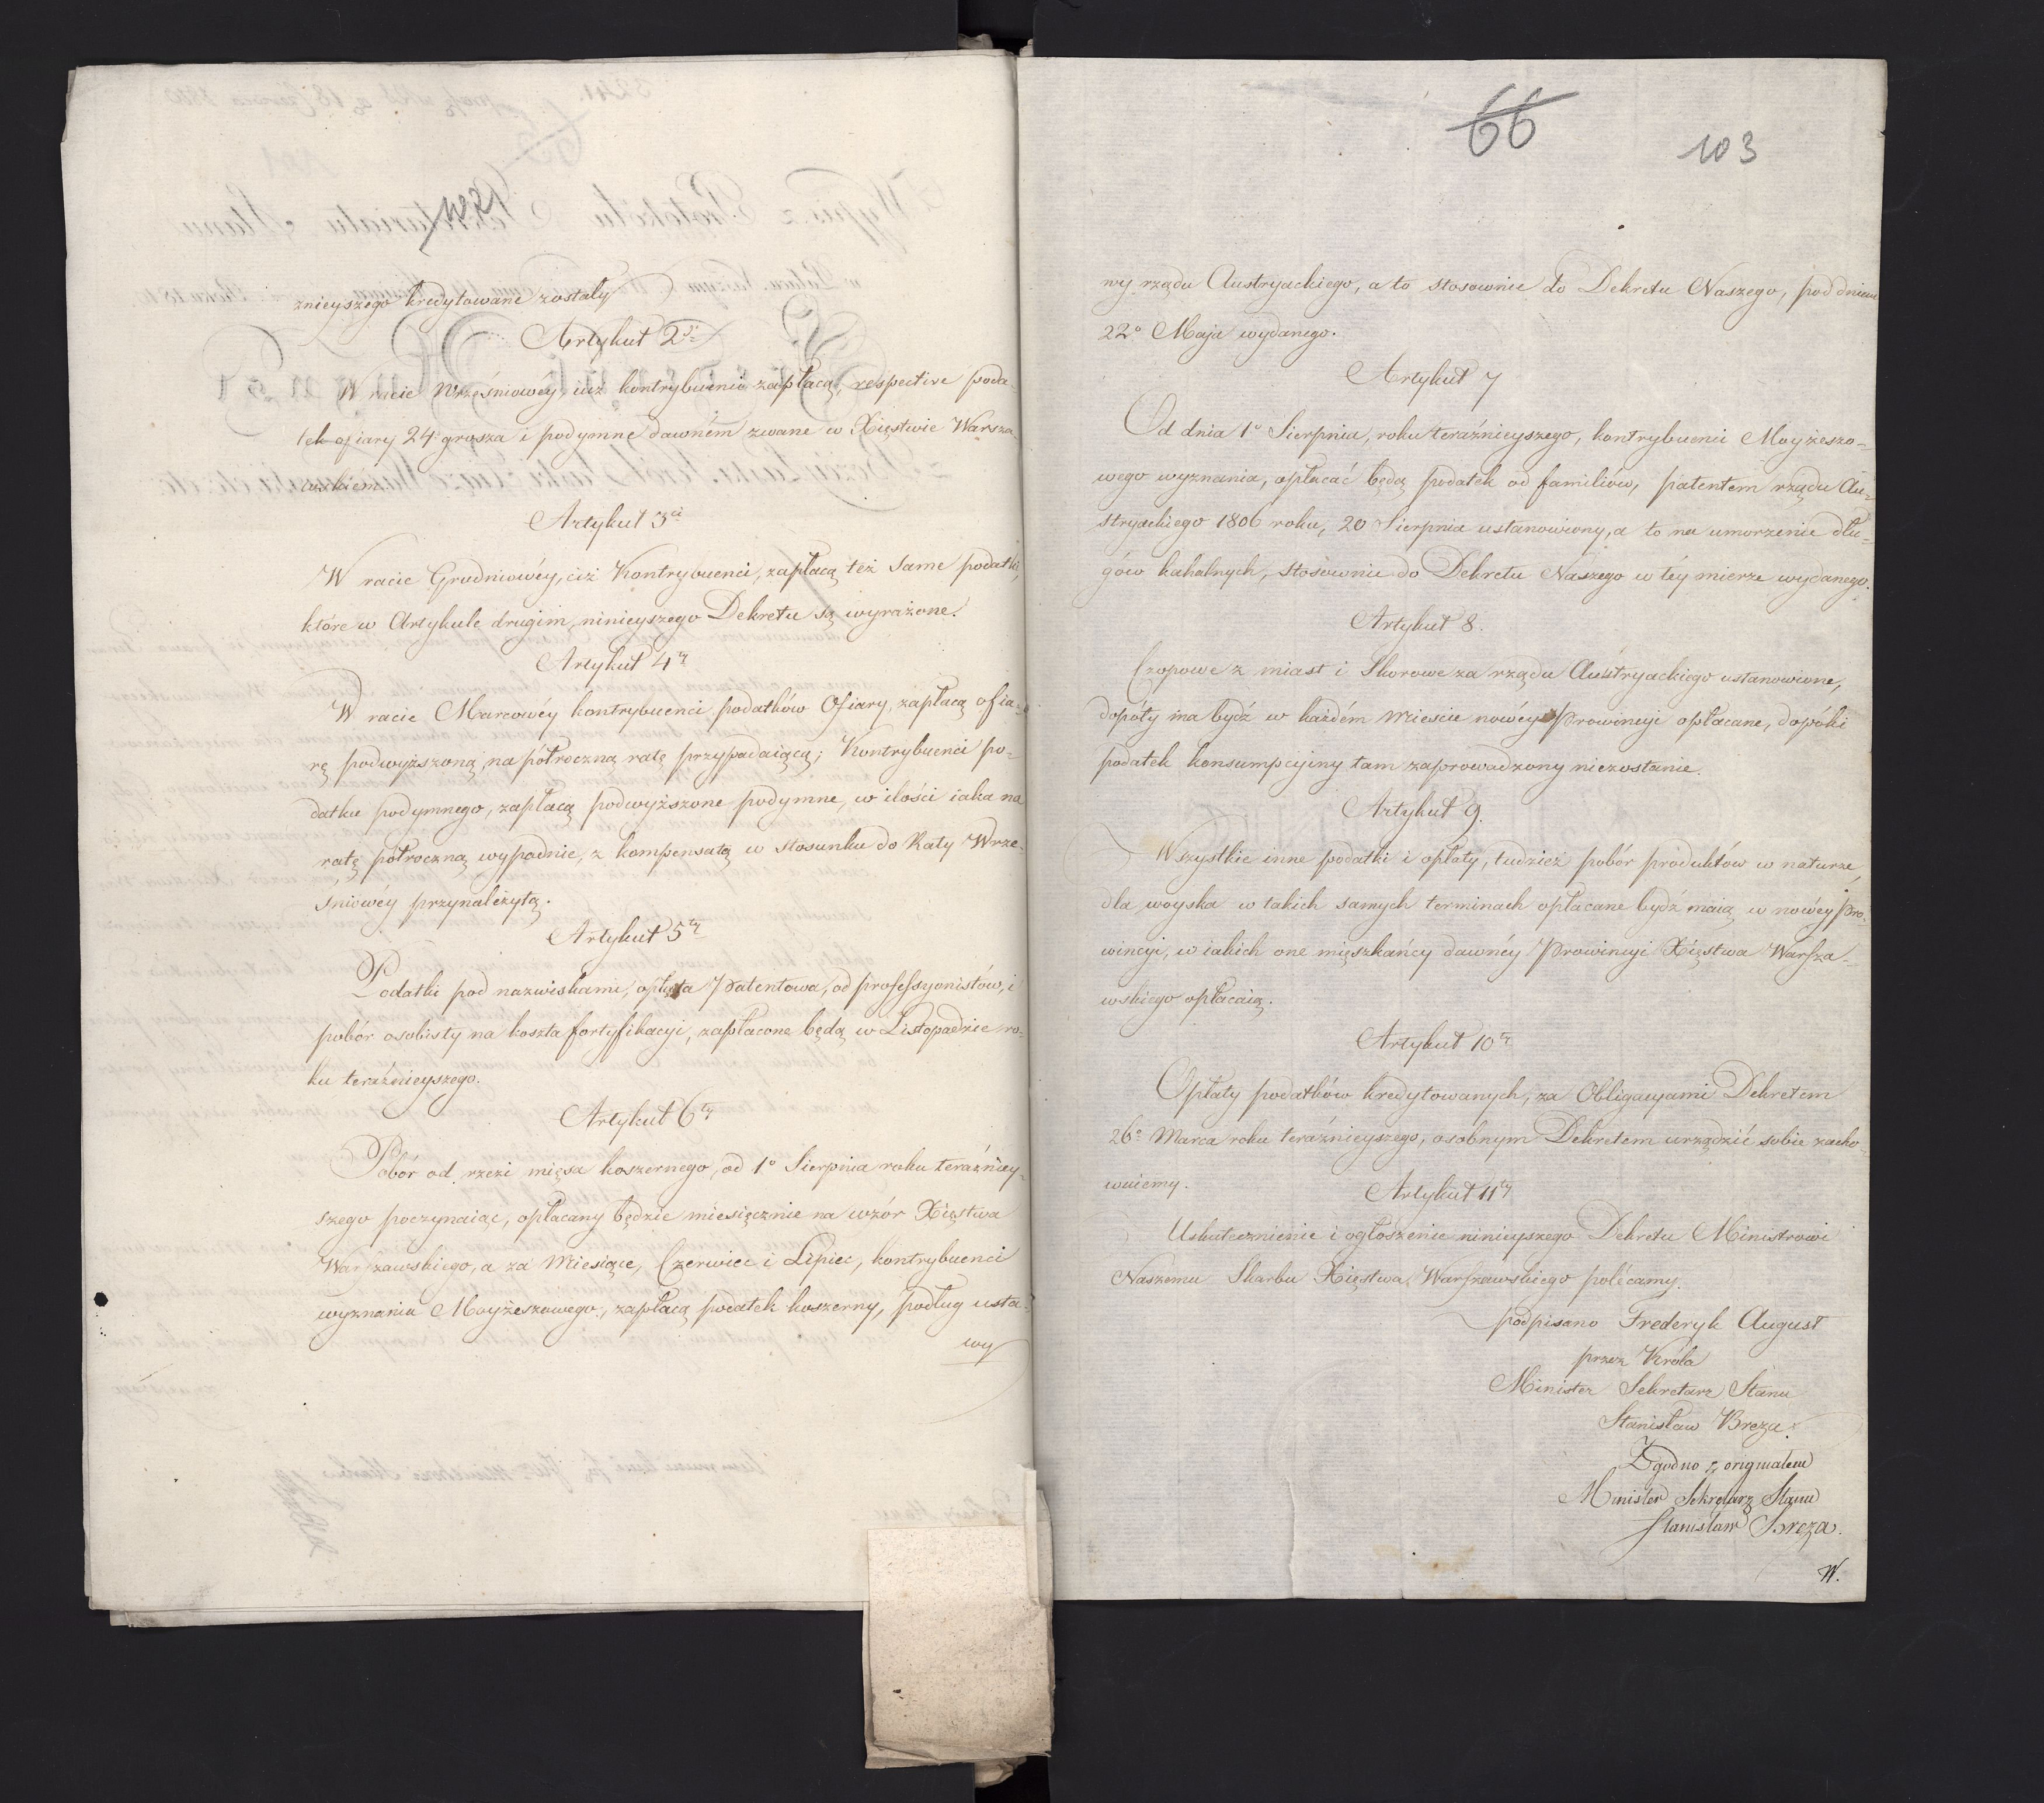 znieyszego kredytowane zostały
Artykuł 2gi
W racie Wrześniowéy, ciż kontrybuenci zapłacą, respective poda-
tek ofiary 24. grosza i podymne dawném zwane w Xięstwie Warsza-
wskiém.
Artykuł 3ci
W racie Grudniowéy, ciż Kontrybuenci, zapłacą téż same podatki,
które w Artykule drugim, ninieyszego Dekretu są wyrażone.
Artykuł 4ty
W racie Marcowéy kontrybuenci podatków Ofiary, zapłacą ofia-
rę podwyższoną, na półroczną ratę przypadaiącą; Kontrybuenci po-
datku podymnego, zapłacą podwyższone podymne, w ilości iaka na
ratę półroczną wypadnie, z kompensatą w stosunku do Raty Wrze-
śniowéy przynależytą.
Artykuł 5ty
Podatki pod nazwiskami, opłata Patentowa, od professyonistów, i
pobór osobisty na koszta fortyfikacyi, zapłacone będą w Listopadzie ro-
ku teraźnieyszego.
Artykuł 6ty
Pobór od rzezi mięsa koszernego, od 1o Sierpnia roku teraźniey-
szego poczynaiąc, opłacany będzie miesięcznie na wzór Xięstwa
Warszawskiego, a za Miesiące, Czerwiec i Lipiec, kontrybuenci
wyznania Moyżeszowego, zapłacą podatek koszerny, podług usta-
wy
66
103
wy rządu Austryackiego, a to stosownie do Dekretu Naszego, pod dniem
22o Maja wydanego.
Artykuł 7
Od dnia 1o Sierpnia, roku teraźnieyszego, kontrybuenci Moyżeszo-
wego wyznania, opłacać będą podatek od familiów, patentem rządu Au-
stryackiego 1806 roku, 20 Sierpnia ustanowiony, a to na umorzenie dłu-
gów kahalnych, stosownie do Dekretu Naszego w téy mierze wydanego.
Artykuł 8.
Czopowe z miast i Skorowe za rządu Austryackiego ustanowione,
dopóty ma bydź w każdém Mieście nowéy Prowincyi opłacane, dopóki
podatek konsumpcyiny tam zaprowadzony niezostanie.
Artykuł 9.
Wszystkie inne podatki i opłaty, tudzież pobór produktów w naturze,
dla woyska w takich samych terminach opłacane bydź maią w nowéy Pro-
wincyi, w iakich one mięszkańcy dawnéy Prowincyi Xięstwa Warsza-
wskiego opłacaią.
Artykuł 10ty
Opłaty podatków kredytowanych, za Obligacyami Dekretem
26o Marca roku teraźnieyszego, osobnym Dekretem urządzić sobie zacho-
wuiemy.
Artykuł 11ty
Uskutecznienie i ogłoszenie ninieyszego Dekretu Ministrowi
Naszemu Skarbu Xięstwa Warszawskiego polécamy.
podpisano Frederyk August
przez Króla
Minister Sekretarz Stanu
Stanisław Breza.
Zgodno z originałem
Minister Sekretarz Stanu
Stanisław Breza.
W.